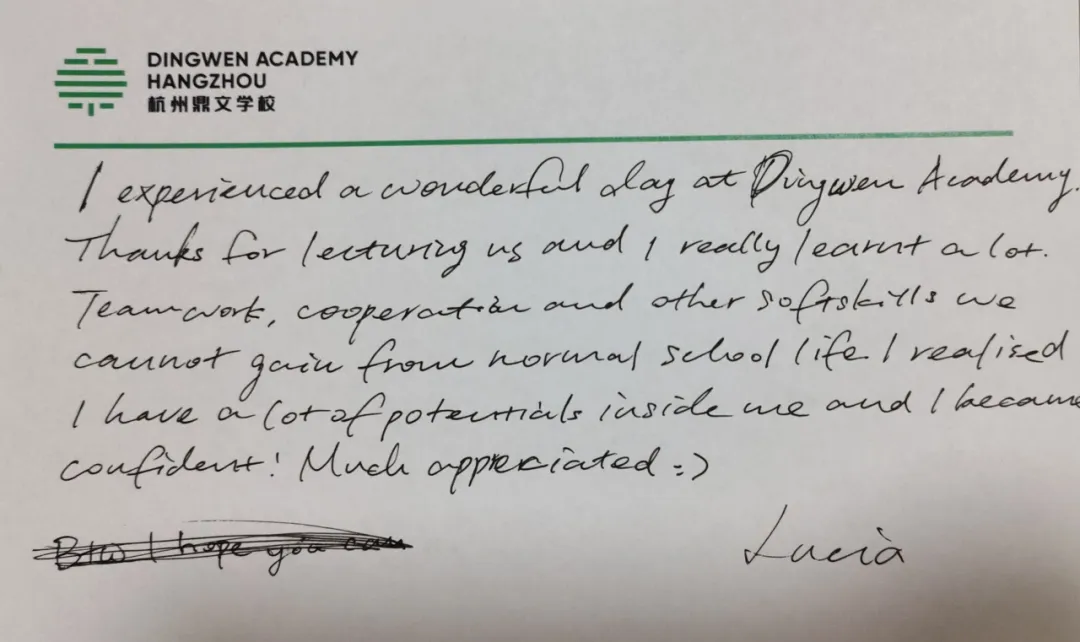 DINGWEN ACADEMY
HANGZHOU
杭州鼎文学校
I experienced a wonderful day at Dingwen Academy.
Thanks for lecturing us and I really learnt a lot.
Teamwork, cooperation and other softskills we
cannot gain from normal school life. I realised
I have a lot of potentials inside me and I became
confident! Much appreciated =)
BTW I hope you can
Lucia